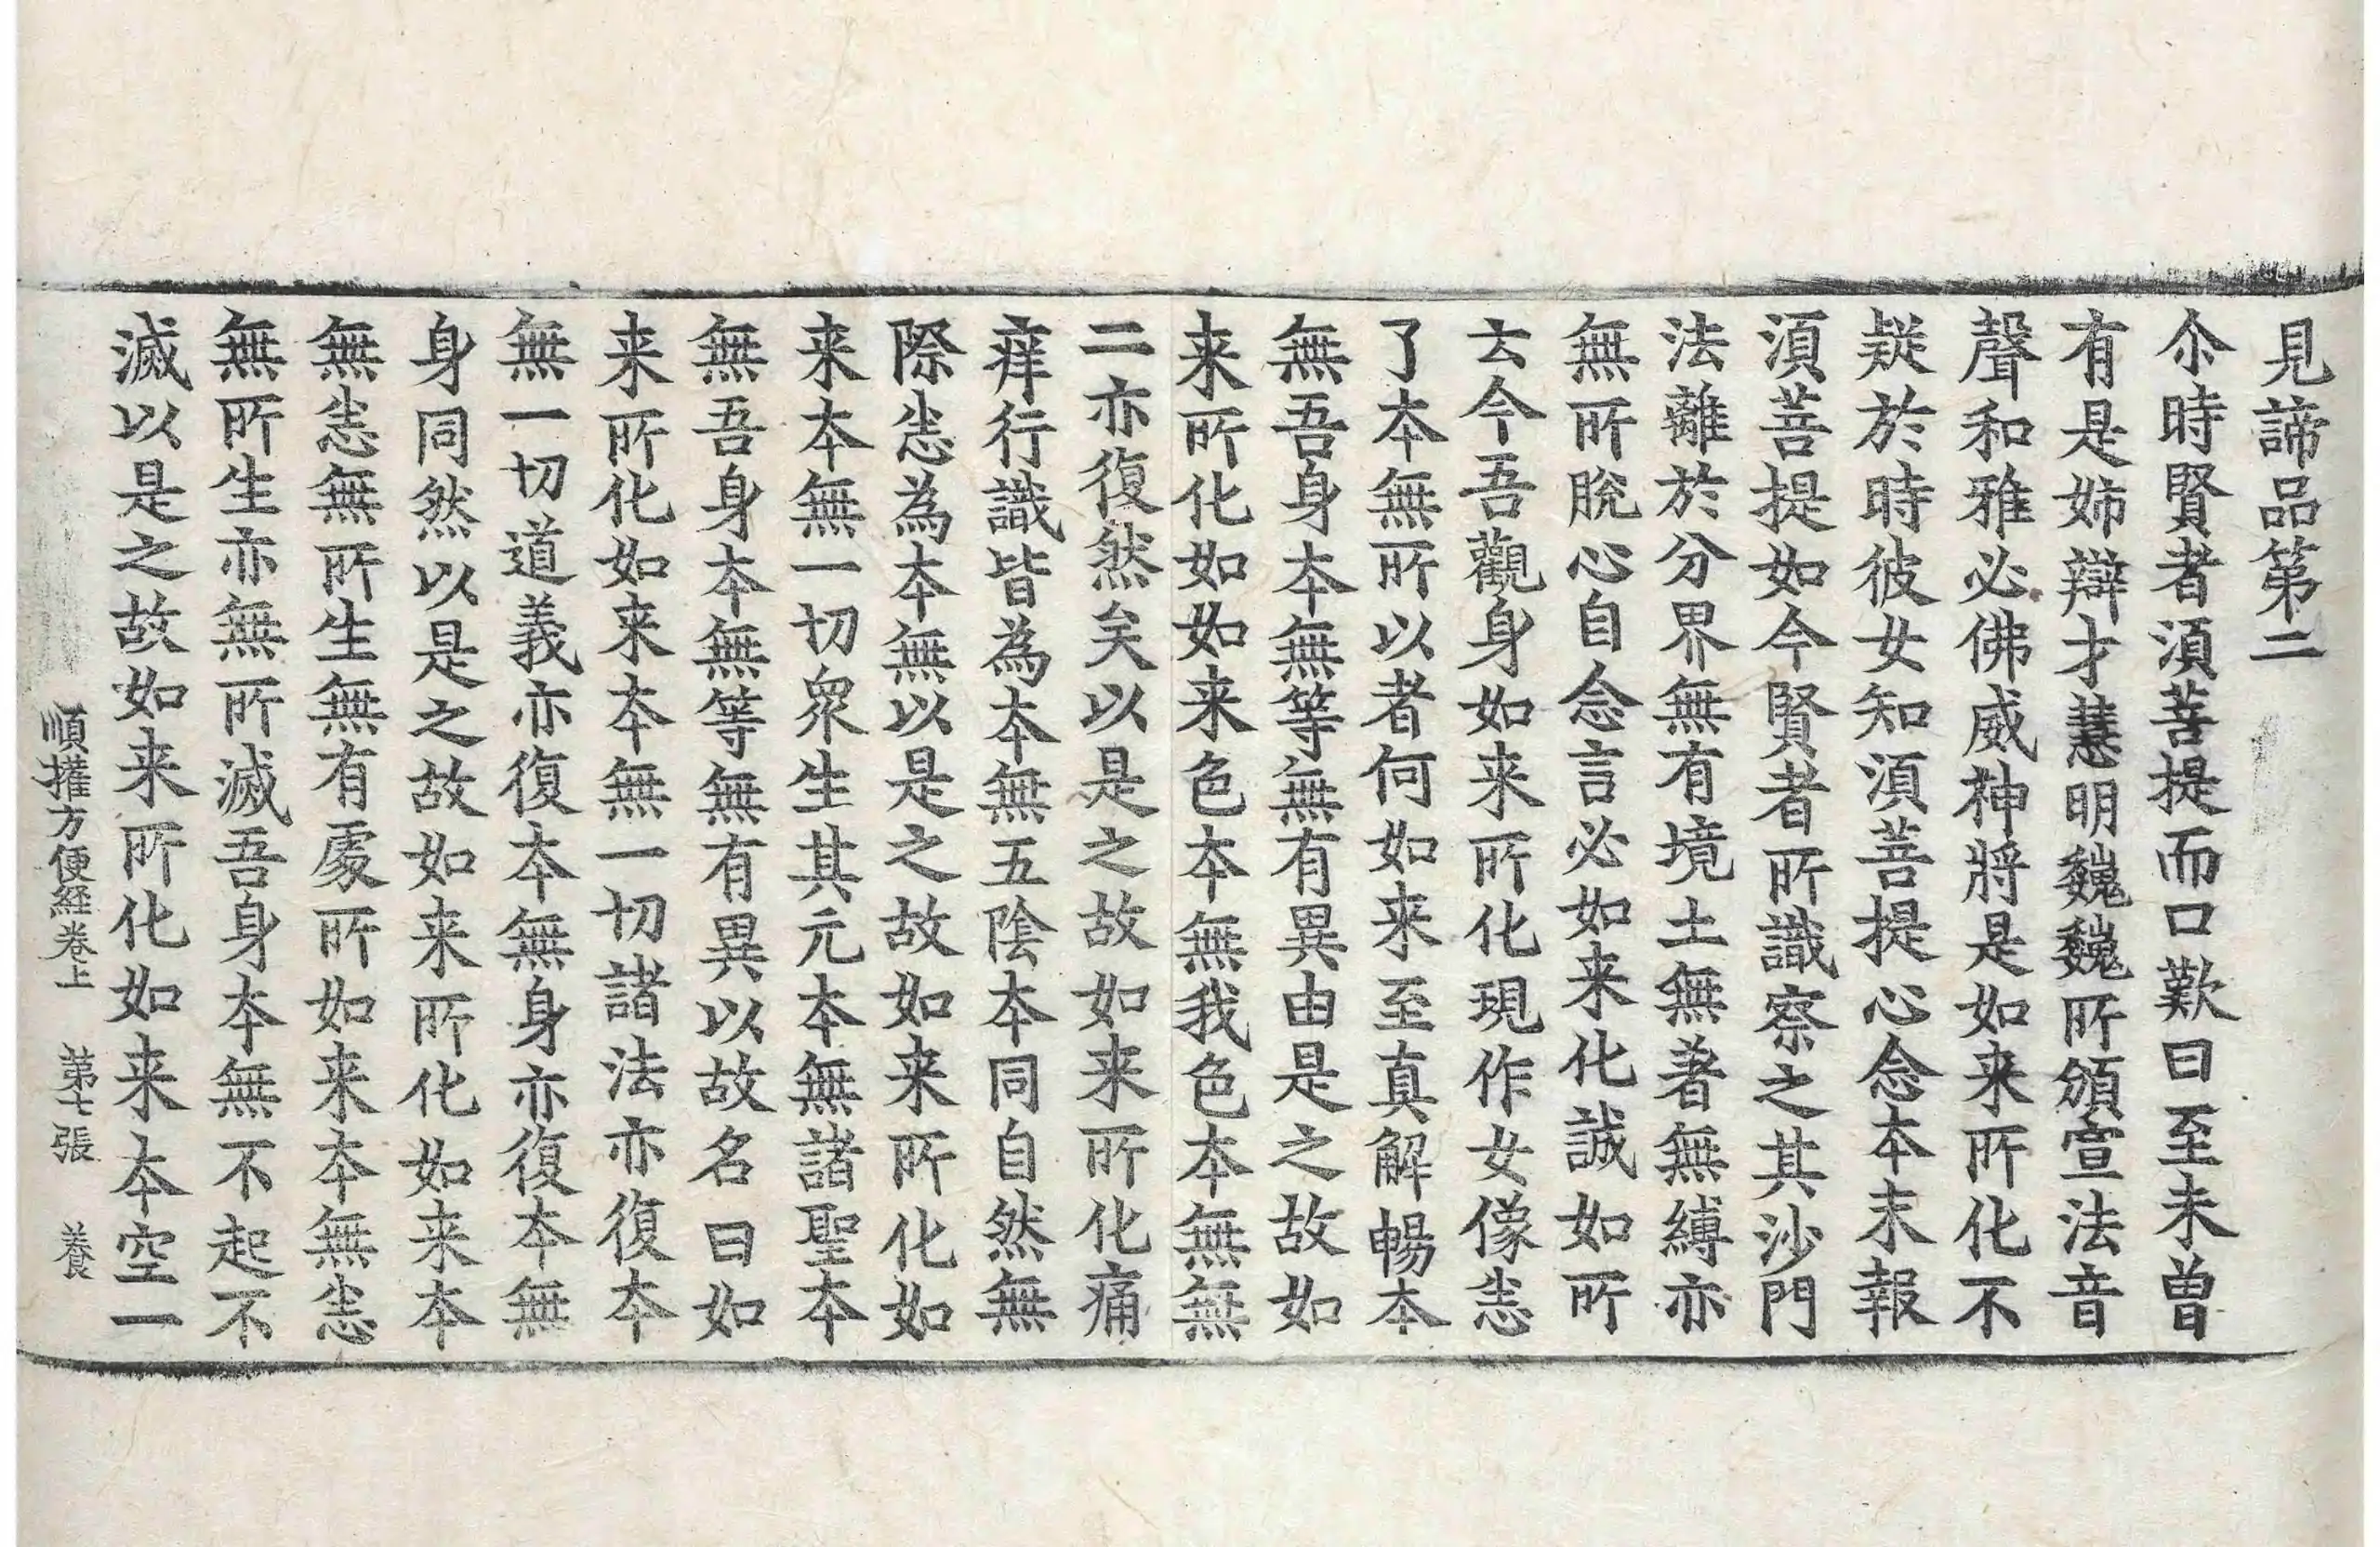 見諦品第二
尒時賢者須菩提而口歎曰至未曾
有是姉辯才慧明巍巍所頒宣法音
聲和雅必佛威神將是如来所化不
疑於時彼女知須菩提心念本末報
須菩提如今賢者所識察之其沙門
法離於分界無有境土無著無縛亦
無所脫心自念言必如来化誠如所
云今吾觀身如来所化現作女像悉
了本無所以者何如来至真解暢本
無吾身本無等無有異由是之故如
来所化如如来色本無我色本無無
二亦復然矣以是之故如来所化痛
痒行識皆為本無五陰本同自然無
際悉為本無以是之故如来所化如
来本無一切衆生其元本無諸聖本
無吾身本無等無有異以故名曰如
来所化如来本無一切諸法亦復本
無一切道義亦復本無身亦復本無
身同然以是之故如来所化如来本
無悉無所生無有處所如来本無悉
無所生亦無所滅吾身本無不起不
滅以是之故如来所化如来本空一
順攉方便経卷上 第七張 養